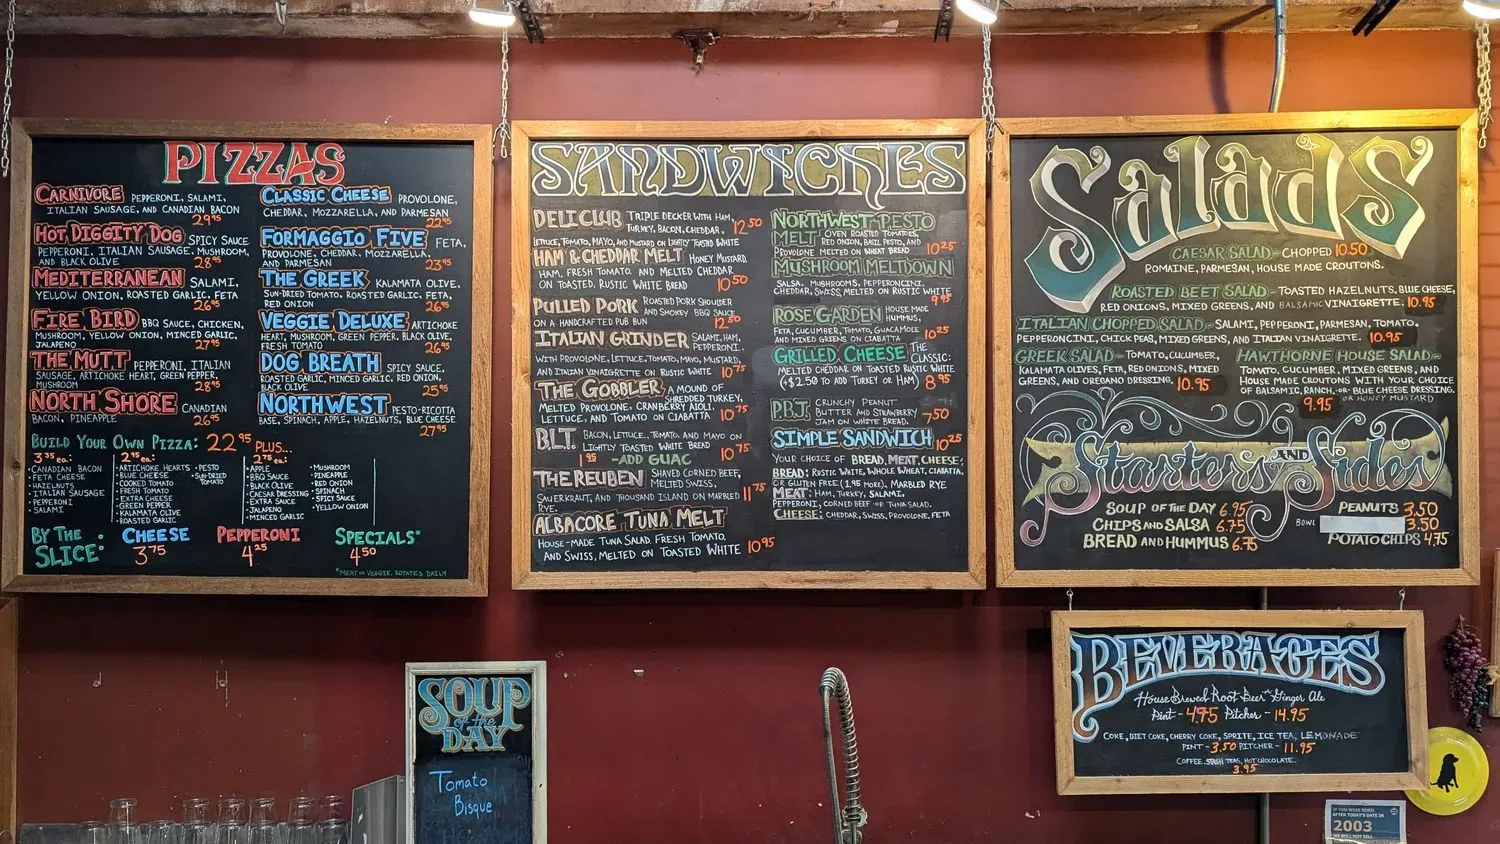 PIZZAS
CARNIVORE PEPPERONI, SALAMI,
ITALIAN SAUSAGE, AND CANADIAN BACON
29.95
HOT DIGGITY DOG SPICY SAUCE
PEPPERONI, ITALIAN SAUSAGE, MUSHROOM,
AND BLACK OLIVE 28.95
MEDITERRANEAN SALAMI,
YELLOW ONION, ROASTED GARLIC, FETA
26.95
FIRE BIRD BBQ SAUCE, CHICKEN,
MUSHROOM, YELLOW ONION, MINCED GARLIC,
JALAPENO 27.95
THE MUTT PEPPERONI, ITALIAN
SAUSAGE, ARTICHOKE HEART, GREEN PEPPER,
MUSHROOM 28.95
NORTH SHORE CANADIAN
BACON, PINEAPPLE 26.95
CLASSIC CHEESE PROVOLONE,
CHEDDAR, MOZZARELLA, AND PARMESAN
22.95
FORMAGGIO FIVE FETA,
PROVOLONE, CHEDDAR, MOZZARELLA,
AND PARMESAN 23.95
THE GREEK KALAMATA OLIVE,
SUN-DRIED TOMATO, ROASTED GARLIC, FETA,
RED ONION 26.95
VEGGIE DELUXE ARTICHOKE
HEART, MUSHROOM, GREEN PEPPER, BLACK OLIVE,
FRESH TOMATO 26.95
DOG BREATH SPICY SAUCE,
ROASTED GARLIC, MINCED GARLIC, RED ONION,
BLACK OLIVE 25.95
NORTHWEST PESTO-RICOTTA
BASE, SPINACH, APPLE, HAZELNUTS, BLUE CHEESE
27.95
BUILD YOUR OWN PIZZA: 22.95 PLUS...
3.35 ea:
• CANADIAN BACON
• FETA CHEESE
• HAZELNUTS
• ITALIAN SAUSAGE
• PEPPERONI
• SALAMI
2.95 ea:
• ARTICHOKE HEARTS
• BLUE CHEESE
• COOKED TOMATO
• FRESH TOMATO
• EXTRA CHEESE
• GREEN PEPPER
• KALAMATA OLIVE
• ROASTED GARLIC
• PESTO
• SUN-DRIED
TOMATO
2.75 ea:
• APPLE
• BBQ SAUCE
• BLACK OLIVE
• CAESAR DRESSING
• EXTRA SAUCE
• JALAPENO
• MINCED GARLIC
• MUSHROOM
• PINEAPPLE
• RED ONION
• SPINACH
• SPICY SAUCE
• YELLOW ONION
BY THE SLICE:
CHEESE 3.75
PEPPERONI 4.25
SPECIALS* 4.50
*MEAT OR VEGGIE, ROTATES DAILY
SANDWICHES
DELI CLUB TRIPLE DECKER WITH HAM,
TURKEY, BACON, CHEDDAR, 12.50
LETTUCE, TOMATO, MAYO, AND MUSTARD ON LIGHTLY TOASTED WHITE
HAM & CHEDDAR MELT HONEY MUSTARD,
HAM, FRESH TOMATO, AND MELTED CHEDDAR
ON TOASTED, RUSTIC WHITE BREAD 10.50
PULLED PORK ROASTED PORK SHOULDER
AND SMOKEY BBQ SAUCE
ON A HANDCRAFTED PUB BUN 12.50
ITALIAN GRINDER SALAMI, HAM,
PEPPERONI,
WITH PROVOLONE, LETTUCE, TOMATO, MAYO, MUSTARD,
AND ITALIAN VINAIGRETTE ON RUSTIC WHITE 10.75
THE GOBBLER A MOUND OF
SHREDDED TURKEY,
MELTED PROVOLONE, CRANBERRY AIOLI,
LETTUCE, AND TOMATO ON CIABATTA 10.75
B.L.T. BACON, LETTUCE, TOMATO, AND MAYO ON
LIGHTLY TOASTED WHITE BREAD 10.75
1.95 -ADD GUAC
THE REUBEN SHAVED CORNED BEEF,
MELTED SWISS,
SAUERKRAUT, AND THOUSAND ISLAND ON MARBLED
RYE. 11.75
ALBACORE TUNA MELT
HOUSE-MADE TUNA SALAD FRESH TOMATO,
AND SWISS, MELTED ON TOASTED WHITE 10.95
NORTHWEST PESTO
MELT OVEN ROASTED TOMATOES,
RED ONION, BASIL PESTO, AND
PROVOLONE MELTED ON WHEAT BREAD 10.25
MUSHROOM MELTDOWN
SALSA, MUSHROOMS, PEPPERONCINI,
CHEDDAR, SWISS, MELTED ON RUSTIC WHITE
9.95
ROSE GARDEN HOUSE MADE
HUMMUS,
FETA, CUCUMBER, TOMATO, GUACAMOLE
AND MIXED GREENS ON CIABATTA 10.25
GRILLED CHEESE THE
CLASSIC:
MELTED CHEDDAR ON TOASTED RUSTIC WHITE
(+$2.50 TO ADD TURKEY OR HAM) 8.95
PBJ CRUNCHY PEANUT
BUTTER AND STRAWBERRY
JAM ON WHITE BREAD. 7.50
SIMPLE SANDWICH 10.25
YOUR CHOICE OF BREAD, MEAT, CHEESE,
BREAD: RUSTIC WHITE, WHOLE WHEAT, CIABATTA,
OR GLUTEN FREE (1.95 MORE), MARBLED RYE
MEAT: HAM, TURKEY, SALAMI,
PEPPERONI, CORNED BEEF OR TUNA SALAD.
CHEESE: CHEDDAR, SWISS, PROVOLONE, FETA
Salads
CAESAR SALAD - CHOPPED 10.50
ROMAINE, PARMESAN, HOUSE MADE CROUTONS.
ROASTED BEET SALAD - TOASTED HAZELNUTS, BLUE CHEESE,
RED ONIONS, MIXED GREENS, AND BALSAMIC VINAIGRETTE. 10.95
ITALIAN CHOPPED SALAD - SALAMI, PEPPERONI, PARMESAN, TOMATO,
PEPPERONCINI, CHICK PEAS, MIXED GREENS, AND ITALIAN VINAIGRETTE. 10.95
GREEK SALAD - TOMATO, CUCUMBER,
KALAMATA OLIVES, FETA, RED ONIONS, MIXED
GREENS, AND OREGANO DRESSING. 10.95
HAWTHORNE HOUSE SALAD -
TOMATO, CUCUMBER, MIXED GREENS, AND
HOUSE MADE CROUTONS WITH YOUR CHOICE
OF BALSAMIC, RANCH, OR BLUE CHEESE DRESSING.
9.95 OR HONEY MUSTARD
Starters AND Sides
SOUP OF THE DAY 6.95
CHIPS AND SALSA 6.75
BREAD AND HUMMUS 6.75
PEANUTS 3.50
BOWL 3.50
POTATO CHIPS 4.75
BEVERAGES
House Brewed Root Beer Ginger Ale
Pint - 4.75 Pitcher - 14.95
COKE, DIET COKE, CHERRY COKE, SPRITE, ICE TEA, LEMONADE
PINT - 3.50 PITCHER - 11.95
COFFEE, STASH TEAS, HOT CHOCOLATE.
3.95
SOUP
of the
DAY
Tomato
Bisque
IF YOU WERE BORN
AFTER TODAY'S DATE IN
2003
WE WILL NOT SELL